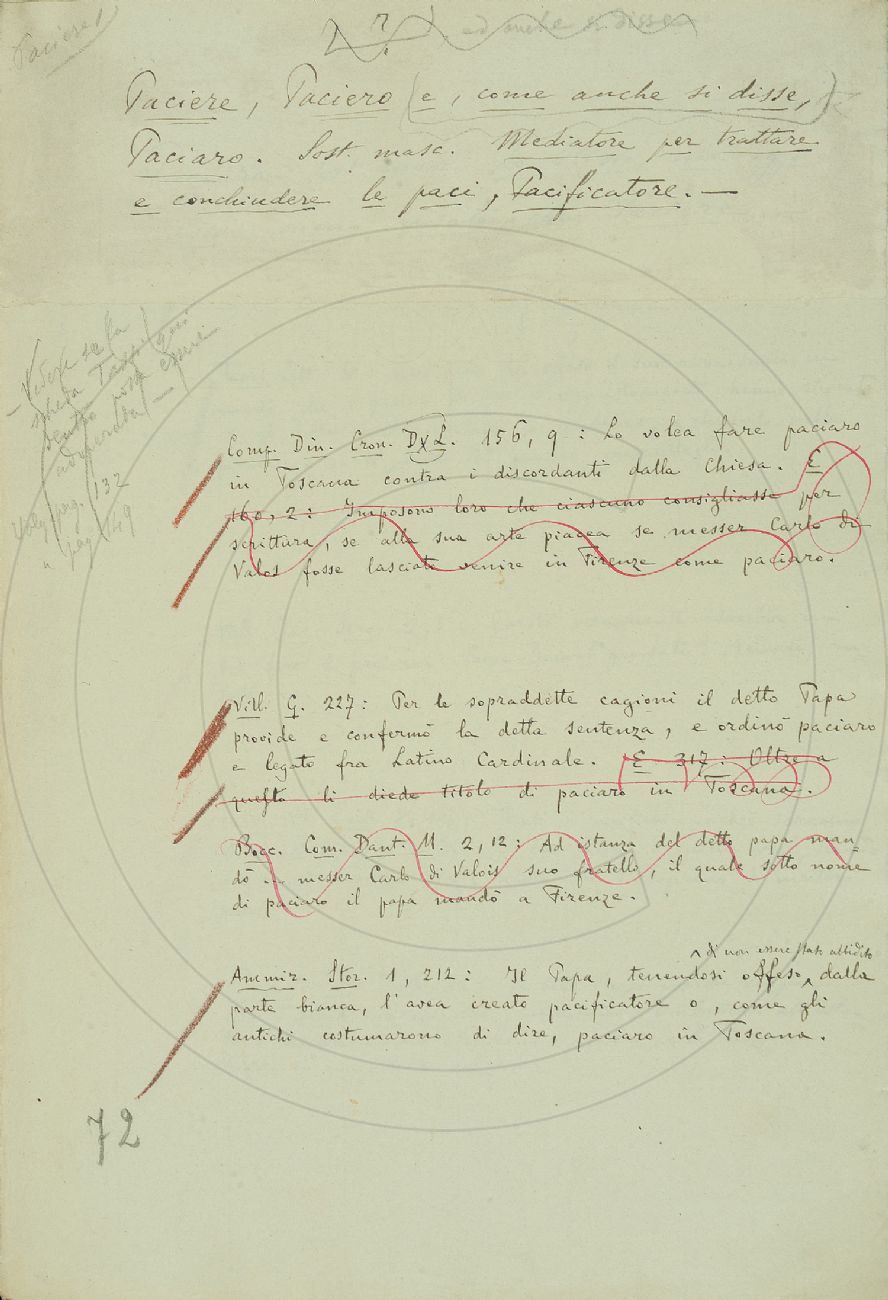 Paciere
ed anche si disse
Paciere, Paciero (e, come anche si disse,)
Paciaro. Sost. masc. Mediatore per trattare
e conchiudere le paci, Pacificatore. —
— Vedere se la
scheda
dentro possa essere
adoperata —
Veley pag. 132
" pag. 149
Comp. Din. Cron. DxL. 156, 9 : Lo volea fare paciaro
in Toscana contra i discordanti dalla Chiesa. E
160, 2 : Imposono loro che ciascuno consigliasse per
scrittura, se alla sua arte piacea se messer Carlo di
Valos fosse lasciato venire in Firenze come paciaro.
Vill. G. 227 : Per le sopraddette cagioni il detto Papa
provide e confermò la detta sentenza, e ordinò paciaro
e legato fra Latino Cardinale. E 317 : Oltre a
questo li diede titolo di paciaro in Toscana.
Bocc. Com. Dant. M. 2, 12 : Ad istanza del detto papa man=
dò ... messer Carlo di Valois suo fratello, il quale sotto nome
di paciaro il papa mandò a Firenze.
di non essere stato ubbidito
Ammir. Stor. 1, 212 : Il Papa, tenendosi offeso, dalla
parte bianca, l'avea creato pacificatore o, come gli
antichi costumarono di dire, paciaro in Toscana.
72